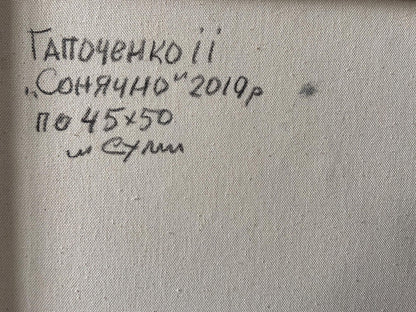 Гапоченко іі
„Сонячно" 2019р
по 45×50
м Суми